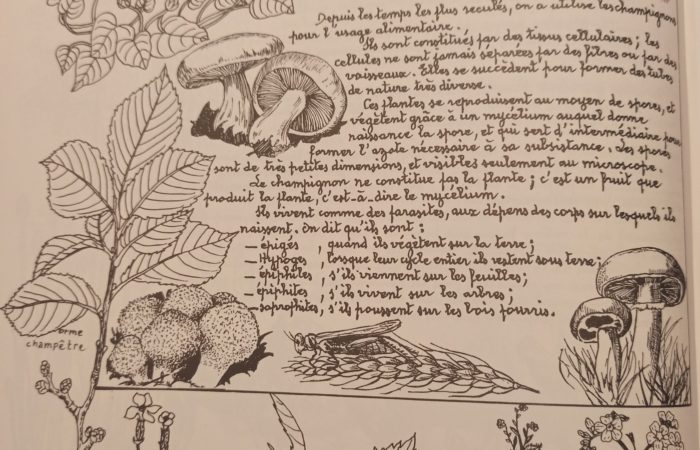 Depuis les temps les plus reculés, on a utilisé les champignons
pour l'usage alimentaire.
Ils sont constitués par des tissus cellulaires ; les
cellules ne sont jamais séparées par des fibres ou par des
vaisseaux. Elles se succèdent pour former des tubes
de nature très diverse.
Ces plantes se reproduisent au moyen de spores, et
végètent grâce à un mycélium auquel donne
naissance la spore, et qui sert d'intermédiaire pour
former l'azote nécessaire à sa subsistance. Les spores
sont de très petites dimensions, et visibles seulement au microscope.
Le champignon ne constitue pas la plante ; c'est un fruit que
produit la plante, c'est-à-dire le mycélium.
Ils vivent comme des parasites, aux dépens des corps sur lesquels ils
naissent. On dit qu'ils sont :
_ épigés , quand ils végètent sur la terre ;
_ Hypogés , lorsque leur cycle entier ils restent sous terre ;
_ épiphiles , s'ils viennent sur les feuilles ;
_ épiphites , s'ils vivent sur les arbres ;
_ saprophites , s'ils poussent sur les bois pourris.
orme
champêtre